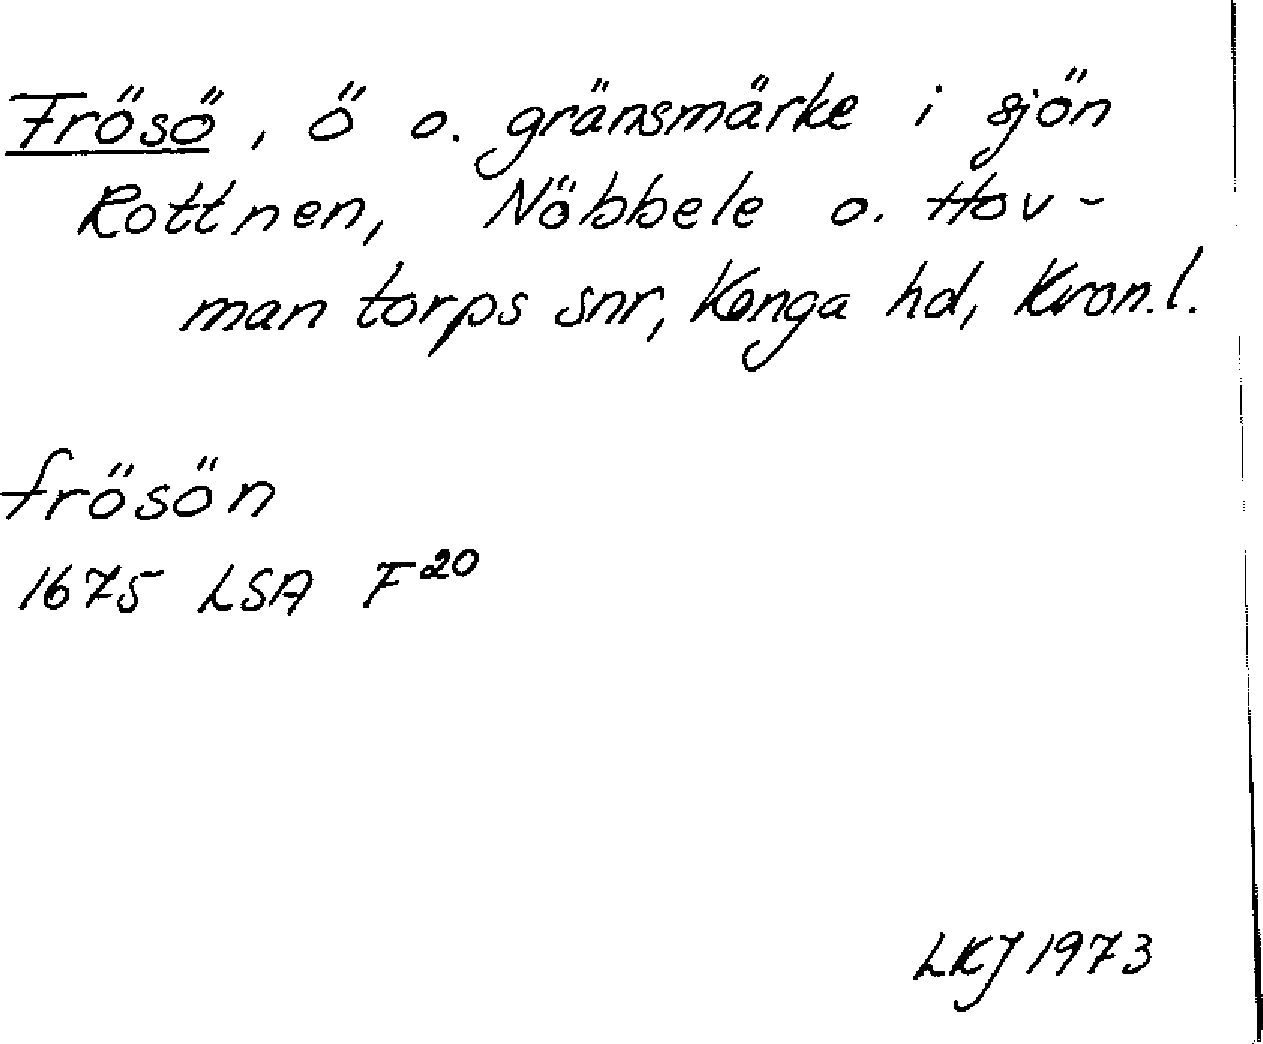 Frösö, ö o. gränsmärke i sjön
Rottnen, Nöbbele o. Hov-
mantorps snr, Konga hd, Kron.l.
frösön
1675 LSA F20
LKJ 1973